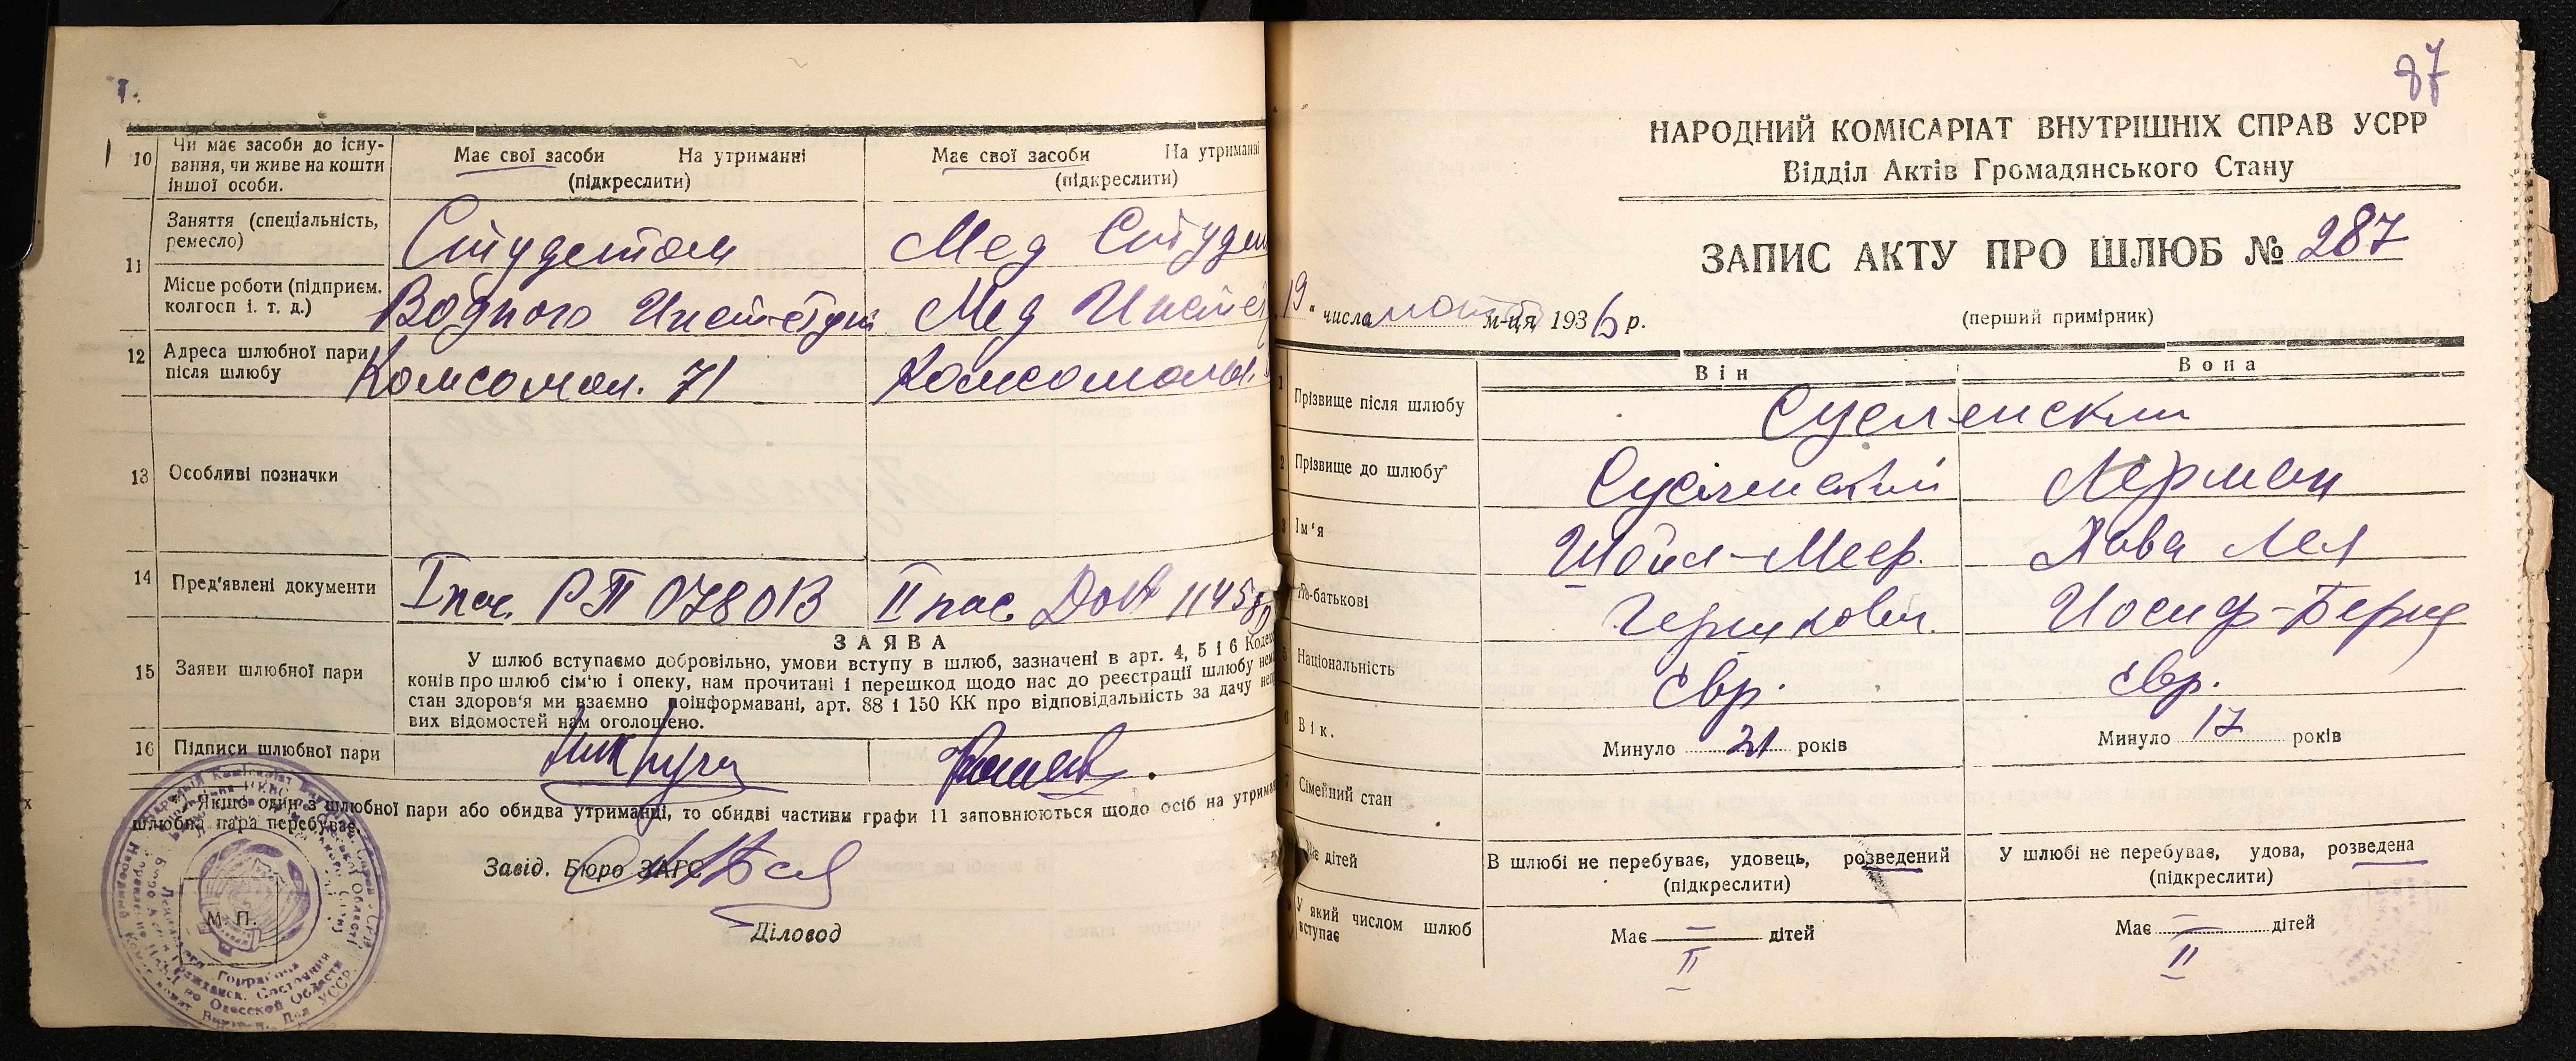 10 Чи має засоби до існу-
вання, чи живе на кошти
іншої особи.
Має свої засоби На утриманні
(підкреслити)
Має свої засоби На утриманні
(підкреслити)
11 Заняття (спеціальність,
ремесло)
Студентом
Мед Студен
Місце роботи (підприєм.
колгосп і. т. д.)
Водного
Мед
12 Адреса шлюбної пари
після шлюбу
Комсомол. 71
Комсомольс.
13 Особливі позначки
14 Пред'явлені документи
I пас. РП 078013
II пас. 11458
15 Заяви шлюбної пари
ЗАЯВА
У шлюб вступаємо добровільно, умови вступу в шлюб, зазначені в арт. 4, 5 і 6 Кодек
конів про шлюб сім'ю і опеку, нам прочитані і перешкод щодо нас до реєстрації шлюбу нема
стан здоров'я ми взаємно поінформавані, арт. 88 і 150 КК про відповідальність за дачу неп
вих відомостей нам оголошено.
16 Підписи шлюбної пари
*) Якщо один з шлюбної пари або обидва утриманці, то обидві частини графи 11 заповнюються щодо осіб на утриман
шлюбна пара перебуває.
Завід. Бюро ЗАГС
М. П.
Діловод
87
НАРОДНИЙ КОМІСАРІАТ ВНУТРІШНІХ СПРАВ УСРР
Відділ Актів Громадянського Стану
ЗАПИС АКТУ ПРО ШЛЮБ № 287
19 " числа м-ця 1936 р.
(перший примірник)
Він Вона
1 Прізвище після шлюбу
Сусленский
2 Прізвище до шлюбу
Сусленский Лерман
3 Ім'я
Шойл-Меер. Хава Лея
По-батькові
Иосиф-Берид
5 Національність
Євр. Євр.
6 Вік.
Минуло 21 років Минуло 17 років
7 Сімейний стан
В шлюбі не перебуває, удовець, розведений
(підкреслити)
У шлюбі не перебуває, удова, розведена
(підкреслити)
дітей
Має — дітей Має — дітей
У який числом шлюб
вступає
II II